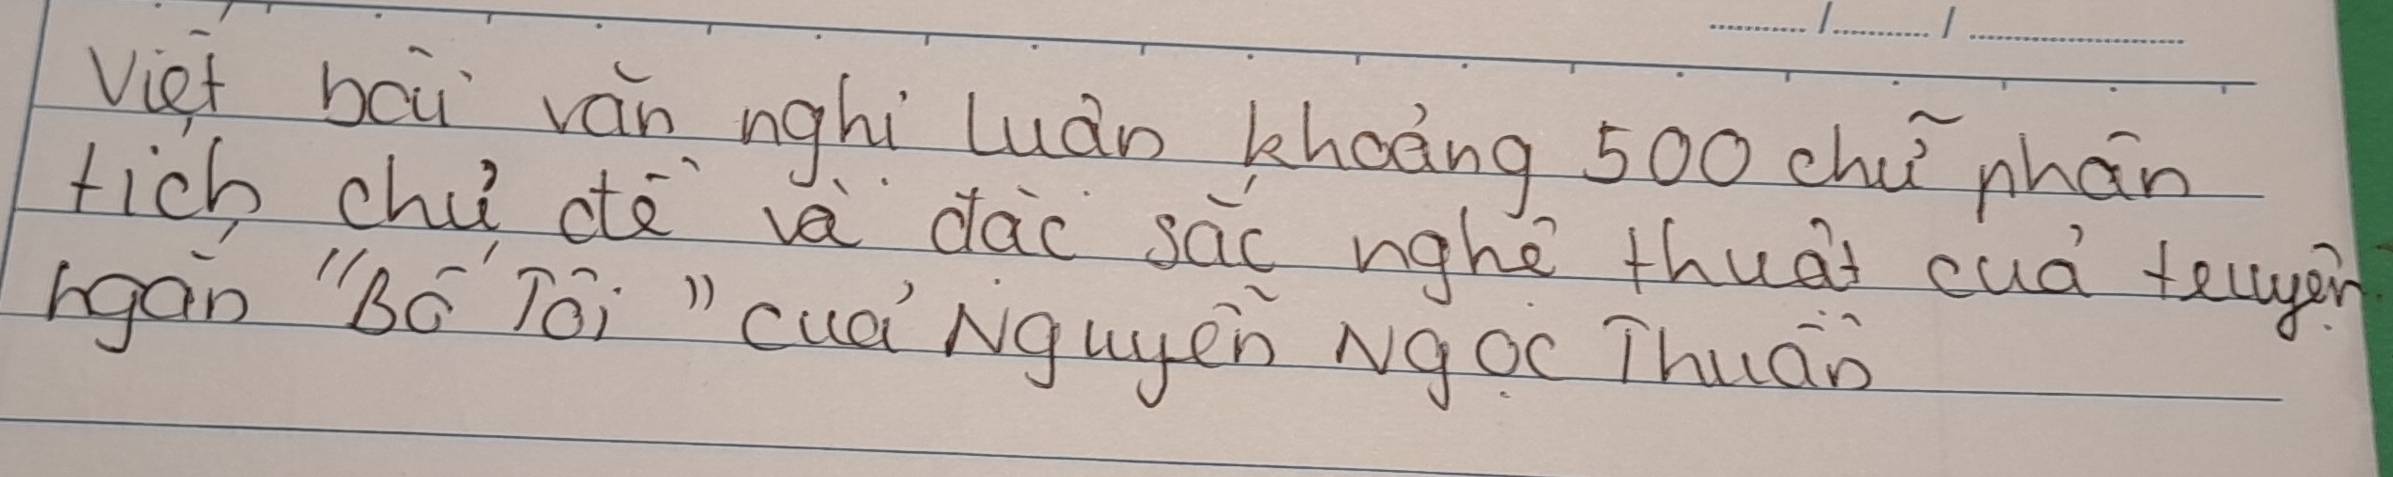 Viết bài văn nghị luận khoảng 500 chữ phân
tích chủ đề và đặc sắc nghệ thuật của truyện
ngắn "Bố Tôi" của Nguyễn Ngọc Thuần